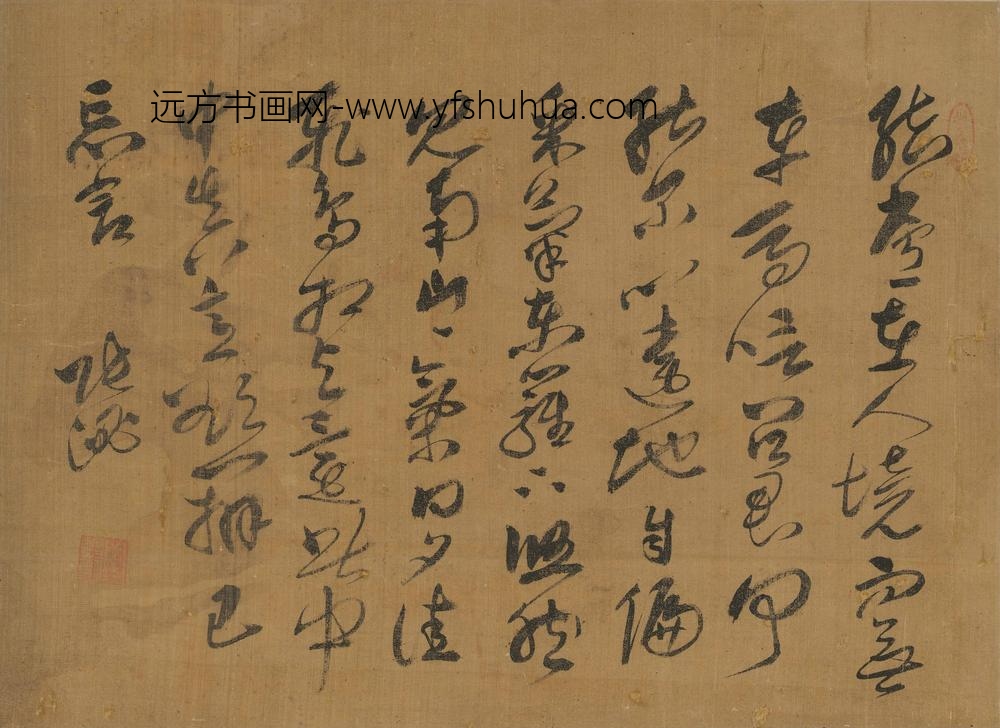 远方书画网-www.yfshuhua.com
結廬在人境而無
車馬喧問君何
能爾心遠地自偏
采菊東籬下悠然
見南山〻氣日夕佳
飛鳥相與還此中
有真意欲辨已
忘言